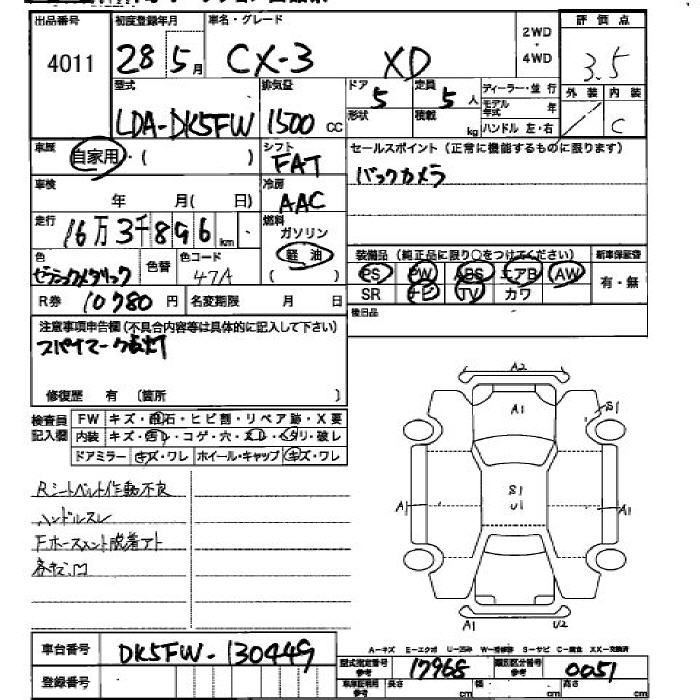 出品番号 初度登録年月 車名・グレード 2WD・4WD 評価点
4011 28年5月 CX-3 XD 3.5
外装 内装
C
型式 排気量 ドア 定員 ディーラー・並行
LDA-DK5FW 1500cc 5 5人 モデル年式 年
形状 積載 kg ハンドル 左・右
車歴 シフト セールスポイント(正常に機能するものに限ります)
自家用・( ) FAT バックカメラ
車検 年 月( 日) 冷房 AAC
走行 燃料
16万3千896km ガソリン
軽油
( )
色 色替 色コード 装備品(純正品に限り○をつけてください) 新車保証書
セラミックメタリック 47A PS PW ABS エアB AW 有・無
R券 10780円 名変期限 月 日 SR ナビ TV カワ
後日品
注意事項申告欄(不具合内容等は具体的に記入して下さい)
スパナマーク点灯
修復歴 有 〔箇所 〕
検査員記入欄 FW キズ・飛石・ヒビ割・リペア跡・X要
内装 キズ・ヨレ・コゲ・穴・スレ・ヘタリ・破レ
ドアミラー キズ・ワレ ホイール・キャップ キズ・ワレ
Rシートベルト作動不良
ハンドルスレ
A2
A1
S1
S1
U1
A1 A1
A1 U2
車台番号 DK5FW-130449
登録番号
A-キズ E-エクボ U-凹み W-補修跡 S-サビ C-腐食 XX-交換済
型式指定番号 参考 17968 類別区分番号 参考 0051
車庫証明用 参考 長さ cm 幅 cm 高さ cm